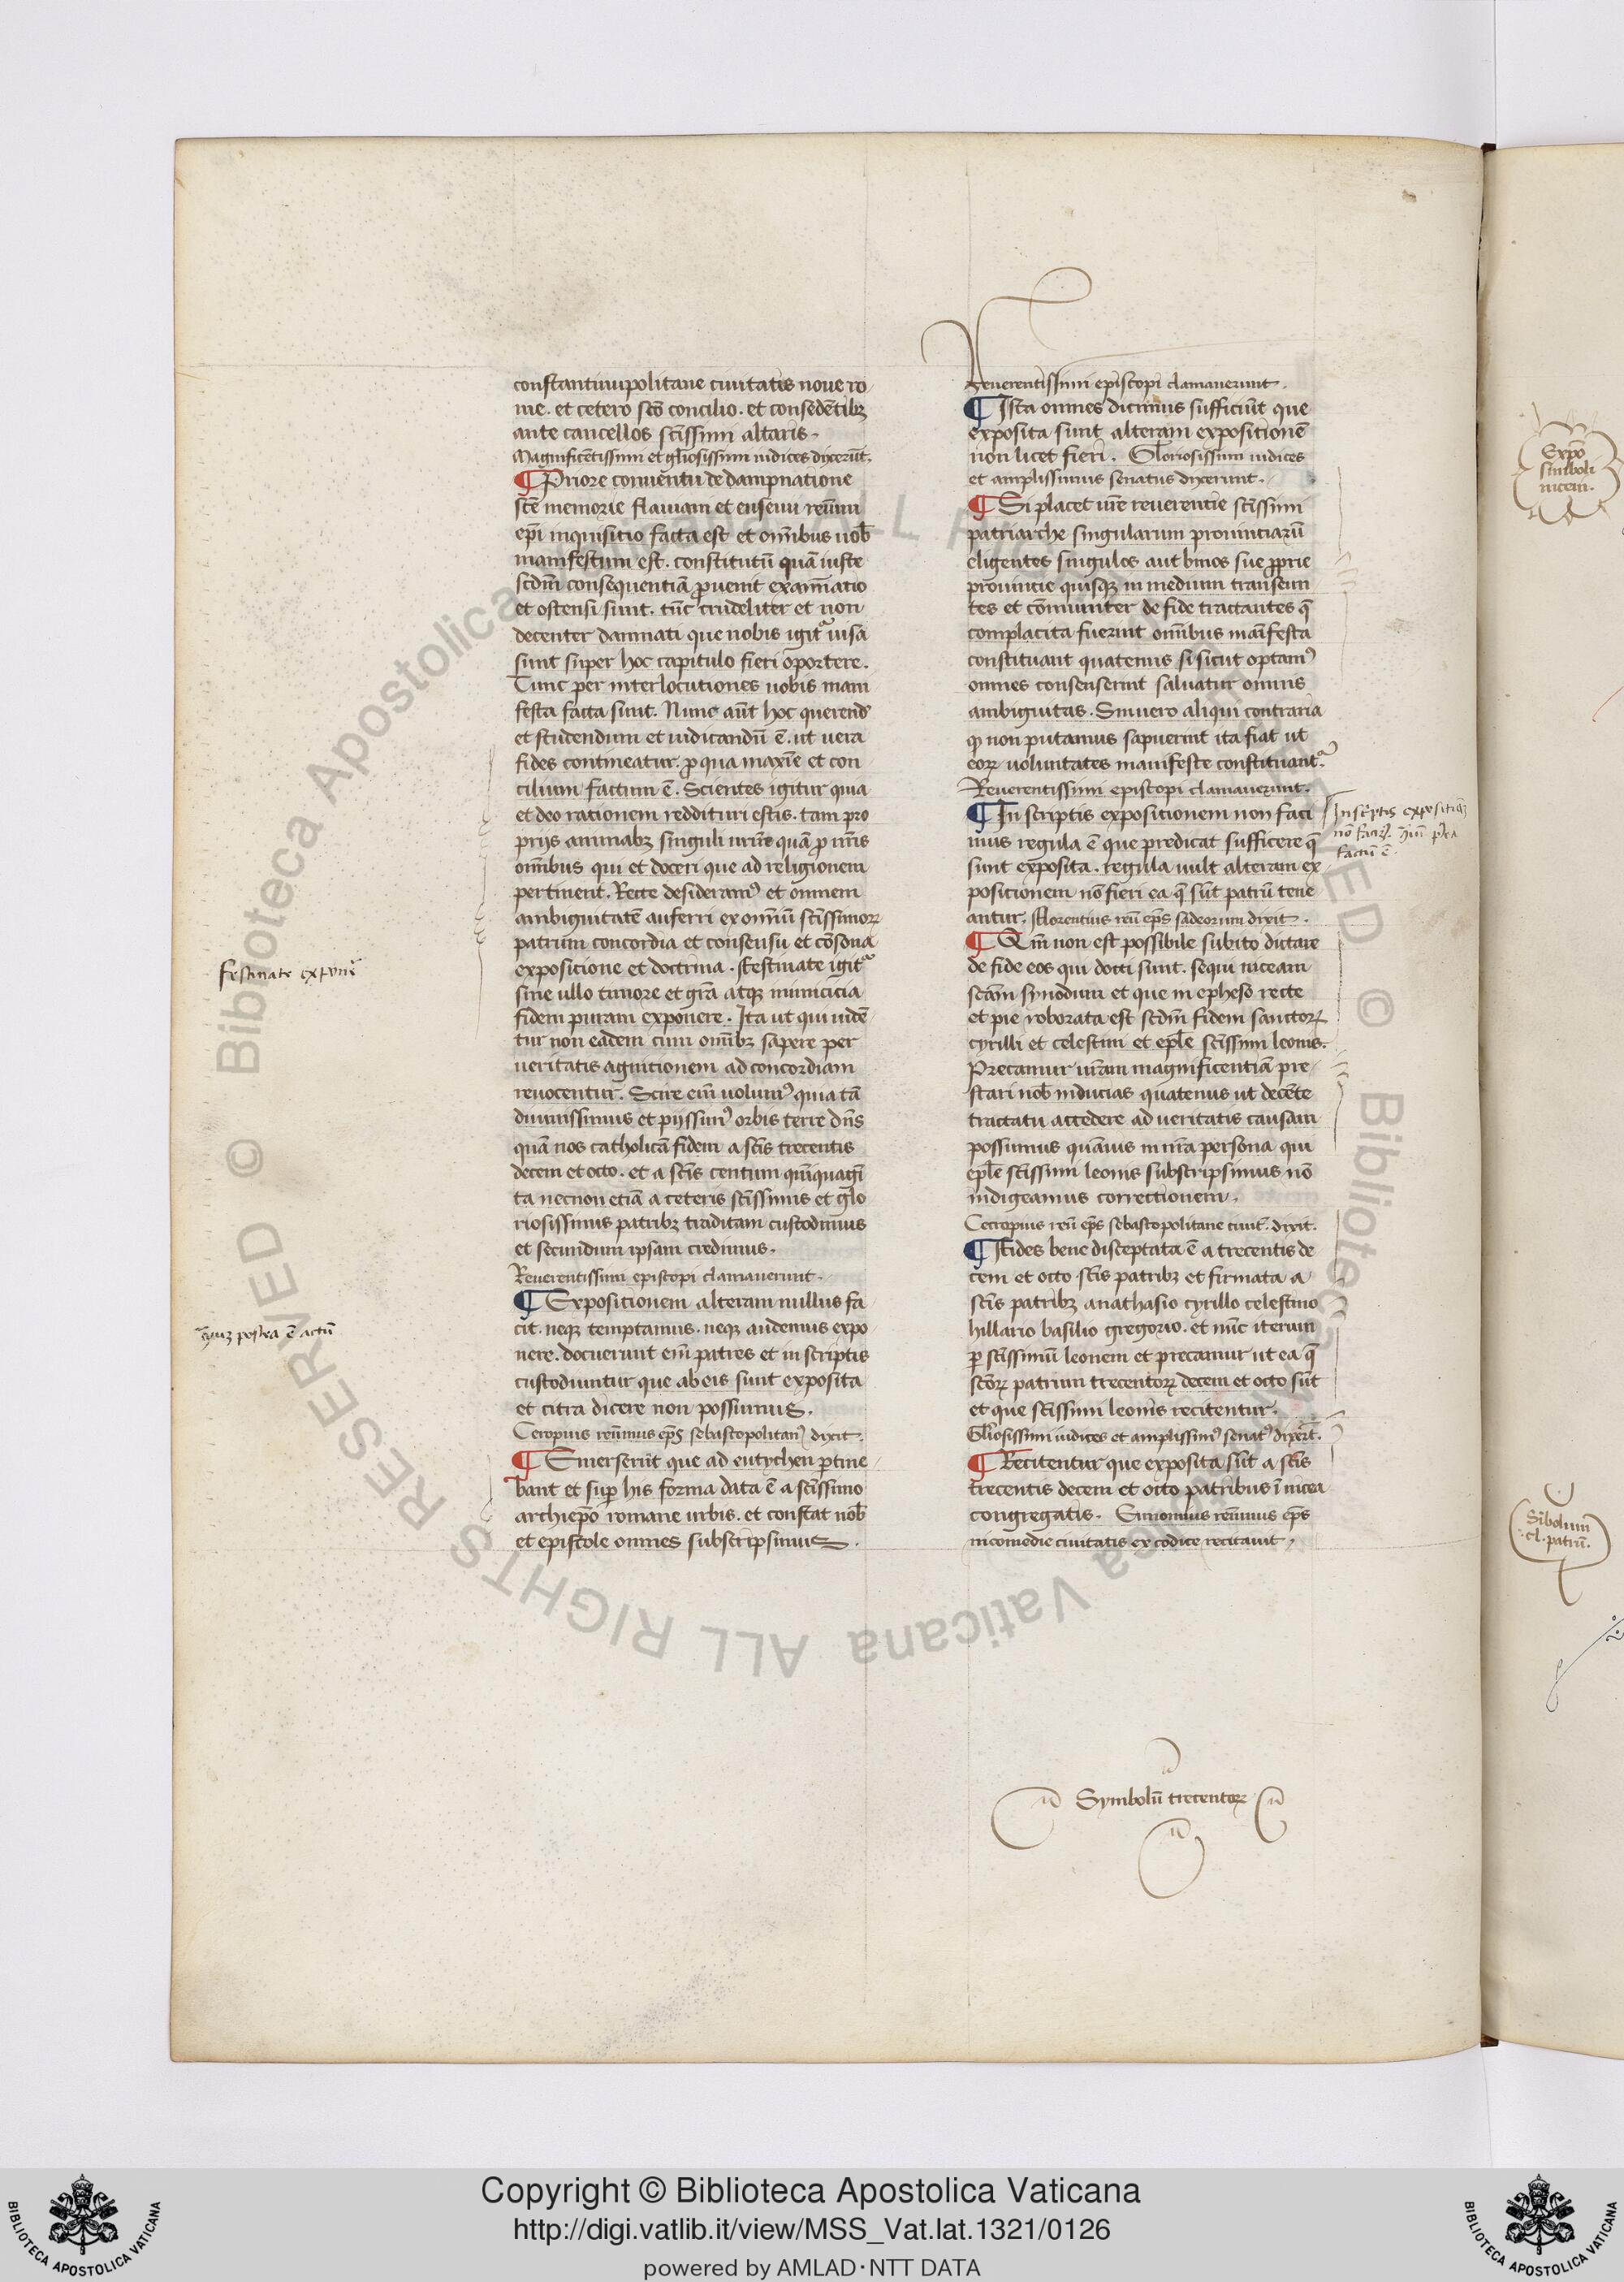 constantinupolitane ciuitatis noue ro
me. et cetero scō concilio. et consedētibꝫ
ante cancellos scīssimi altaris.
Magnificētissimi et gliosissimi iudices dixerūt.
¶ Priore conuentu de dampnatione
scē memorie flauiani et eusebii reūmi
epī inquisitio facta est et omībus nob̄
manifestum est. constitutū quā iuste
scdm̄ consequentiā ꝓuenit examīatio
et ostensi sunt. tūc crudeliter et non
decenter damnati que nobis igit᷑ uisa
sunt super hoc capitulo fieri oportere.
Tunc per interlocutiones nobis mani
festa facta sunt. Nunc aūt hoc querend
et studendum et iudicandū ē. ut uera
fides contineatur. ꝓ qua maxīe et con
cilium factum ē. Scientes igitur quia
et deo rationem reddituri estis. tam pro
prijs animabꝫ singuli urīe quā ꝓ nr̄is
omībus qui et doceri que ad religionem
pertinent. Recte desideramꝰ et omnem
ambiguitatē auferri ex omīū scīssimorꝝ
patrum concordia et consensu et cōsona
expositione et doctrina. Festinate igit᷑
sine ullo timore et grā atqꝫ inimicicia
fidem puram exponere. Ita ut qui uidē
tur non eadem cum omībꝫ sapere per
ueritatis agnitionem ad concordiam
reuocentur. Scire eīn uolumꝰ quia tā
diuinissimus et pijssimꝰ orbis terre dn̄s
quā nos catholicā fidem a scīs trecentis
decem et octo. et a scīs centum quīquagī
ta necnon etiā a ceteris scīssimis et glo
riosissimis patribꝫ traditam custodimus
et secundum ipsam credimus.
Reuerentissimi episcopi clamauerunt.
¶ Expositionem alteram nullus fa
cit. neqꝫ temptamus. neqꝫ audemus expo
nere. docuerunt eīn patres et in scriptis
custodiuntur que ab eis sunt exposita
et citra dicere non possumus.
Ceropius reūmus eps̄ sebastopolitanꝰ dixit.
¶ Emerserūt que ad eutychen ꝑtine
bant et suꝑ his forma data ē a scīssimo
archiepō romane urbis. et constat nob̄
et epistole omnes subscripsimus.
festinate exponere
Reuerentissimi episcopi clamauerunt.
¶ Ista omnes dicimus sufficiūt que
exposita sunt alteram expositionē
non licet fieri. Gloriosissimi iudices
et amplissimus senatus dixerunt.
¶ Si placet ur̄e reuerentie scīssimi
patriarche singularum prouinciarū
eligentes singulos aut binos sue ꝓprie
prouincie quisqꝫ in medium transeun
tes et cōmuniter de fide tractantes q̄
complacita fuerint omībus maīfesta
constituant quatenus si sicut optamꝰ
omnes consenserint saluatur omnis
ambiguitas. Sin uero aliqui contraria
ꝙ non putamus sapuerint ita fiat ut
eorꝝ uoluntates manifeste constituant᷑.
Reuerentissimi episcopi clamauerunt.
¶ In scriptis expositionem non faci
mus regula ē que predicat sufficere q̄
sunt exposita. regula uult alteram ex
positionem nō fieri ea q̄ sūt patrū tene
antur. Florentius reū eps̄ sadeorum dixit.
¶ Qm̄ non est possibile subito dictare
de fide eos qui docti sunt. sequi niceam
scām synodum et que in epheso recte
et pie roborata est scdm̄ fidem sanctorꝝ
cyrilli et celestini et eple scīssimi leonis.
Precamur ur̄am magnificentiā pre
stari nob̄ inducias quatenus ut decēte
tractatu accedere ad ueritatis causam
possimus quāuis in nr̄a persona qui
eple scīssimi leonis subscripsimus nō
indigeamus correctionem.
Cecropius reū eps̄ sebastopolitane ciuit. dixit.
¶ Fides bene disceptata ē a trecentis de
cem et octo scīs patribꝫ et firmata a
scīs patribꝫ anathasio cyrillo celestino
hillario basilio gregorio. et nūc iterum
ꝑ scīssimū leonem et precamur ut ea q̄
scōrꝝ patrum trecentorꝝ decem et octo sūt
et que scīssimi leonis recitentur.
Gliosissimi iudices et amplissimꝰ senatꝰ dixer̄t.
¶ Recitentur que exposita sūt a scīs
trecentis decem et octo patribus ī nicea
congregatis. Eunomius reūmus eps̄
nicomedie ciuitatis ex codice recitauit.
In scriptis expositionē
factū ē
Symbolū trecentorꝝ
Expō
simboli
nicem.
Sībolum
cl. patrū.
Copyright © Biblioteca Apostolica Vaticana
http://digi.vatlib.it/view/MSS_Vat.lat.1321/0126
powered by AMLAD·NTT DATA
BIBLIOTECA APOSTOLICA VATICANA
BIBLIOTECA APOSTOLICA VATICANA
© Biblioteca Apostolica Vaticana ALL RIGHTS RESERVED